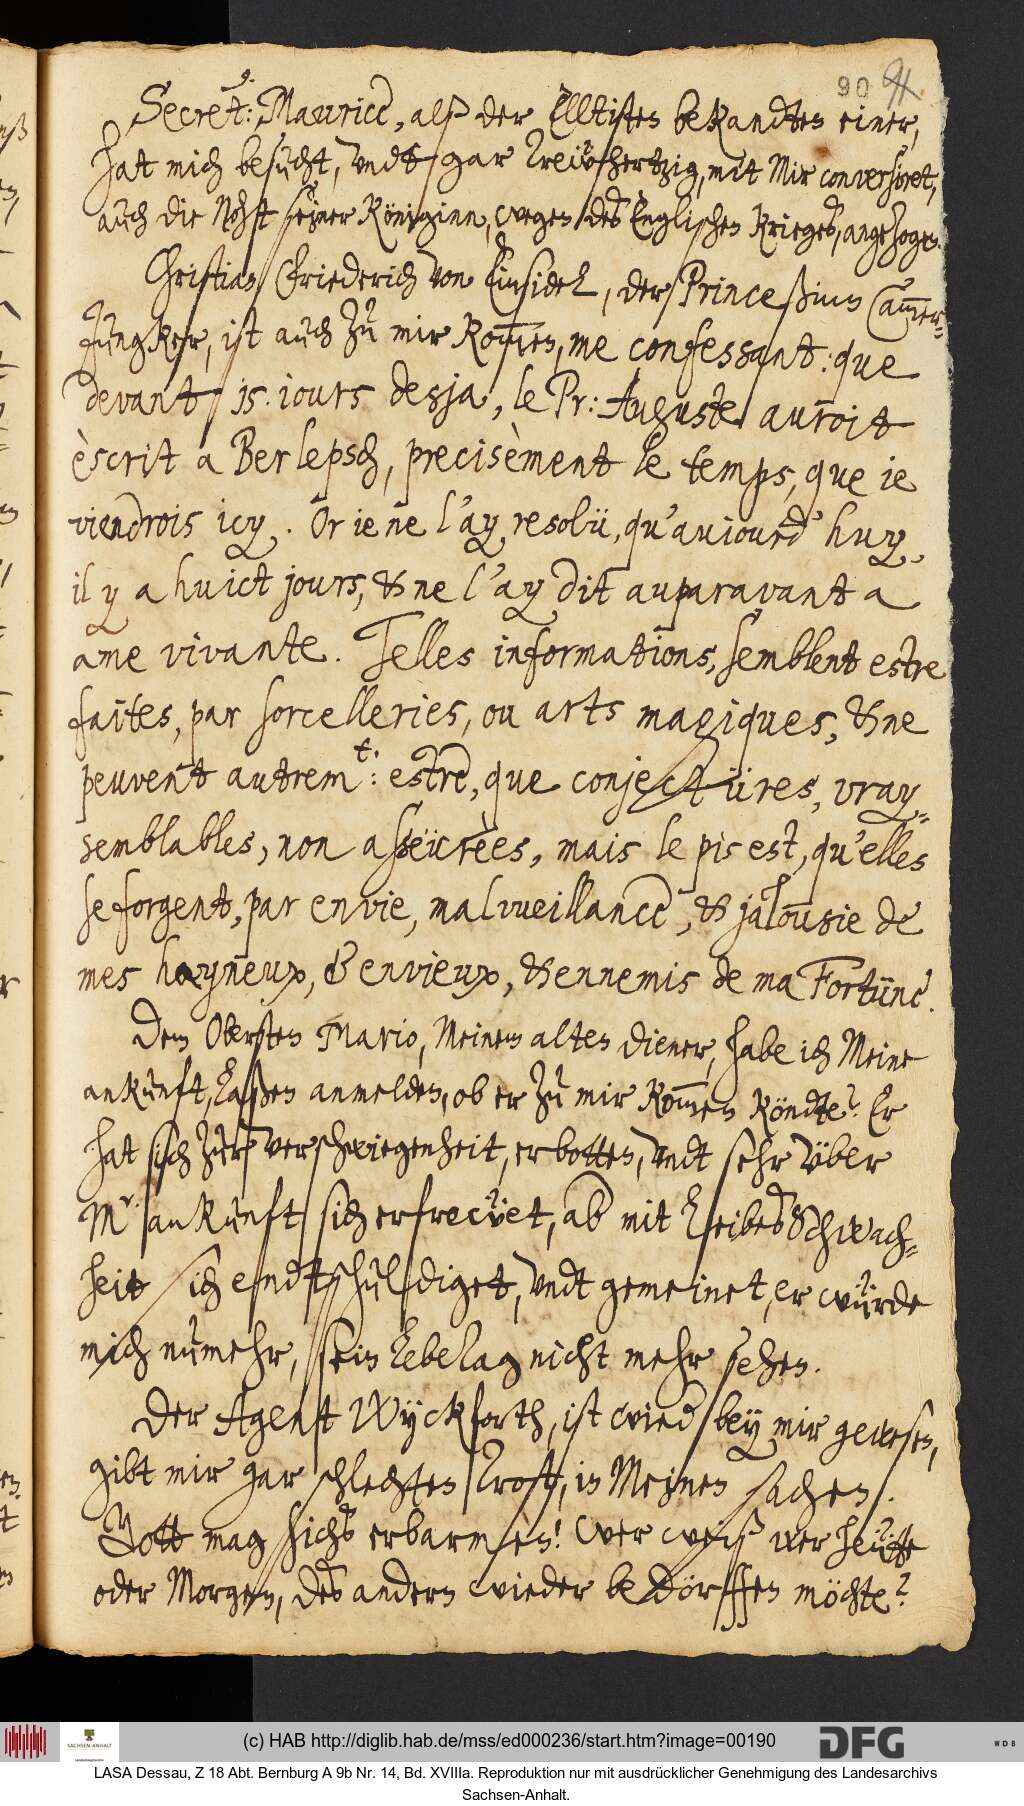 90 91.
Secret: Maurice, als der Elltisten bekandten einer,
hat mich besucht, undt gar trewhertzig, mit Mir conversiret,
auch die Noht seiner Königinn, wegen des Englischen Krieges, angezogen.
Christian Friederich von Einsidel, der Princeßinn Cammer-
Jungker, ist auch zu mir kommen, me confessant: que
devant 15. jours desja, le Pr: Auguste auroit
èscrit a Berlepsch, precisèment le temps, que je
viendrois icy. Or je ne l'ay resolü, qu'aujourd'huy,
il y a huict jours, & ne l'ay dit auparavant a
ame vivante. Telles informations, semblent estre
faites, par sorcelleries, ou arts magiques, & ne
peuvent autrem.t: estre, que conjectüres, vray-
semblables, non asseürèes, mais le pis est, qu'elles
se forgent, par envie, malvueillance, & jalousie de
mes hayneux, & envieux, & ennemis de ma Fortüne.
Dem Obersten Mario, Meinem alten diener, habe ich Meine
ankunft, laßen anmelden, ob er zu mir kommen köndte? Er
hat sich zur verschwiegenheit, erbotten, undt sehr über
Mr. ankunft sich erfrewet, ab mit leibes Schwach-
heit sich endtschuldiget, undt gemeinet, er würde
mich numehr, sein lebelag nicht mehr sehen.
Der Agent Wyckforth, ist wied bey mir gewesen,
gibt mir gar schlechten Trost, in Meinen sachen.
Gott mag sichs erbarmen! wer weiß wer heütte
oder Morgen, des andern wieder bedörffen möchte?
(c) HAB http://diglib.hab.de/mss/ed000236/start.htm?image=00190
SACHSEN-ANHALT
DFG
WDB
LASA Dessau, Z 18 Abt. Bernburg A 9b Nr. 14, Bd. XVIIIa. Reproduktion nur mit ausdrücklicher Genehmigung des Landesarchivs
Sachsen-Anhalt.